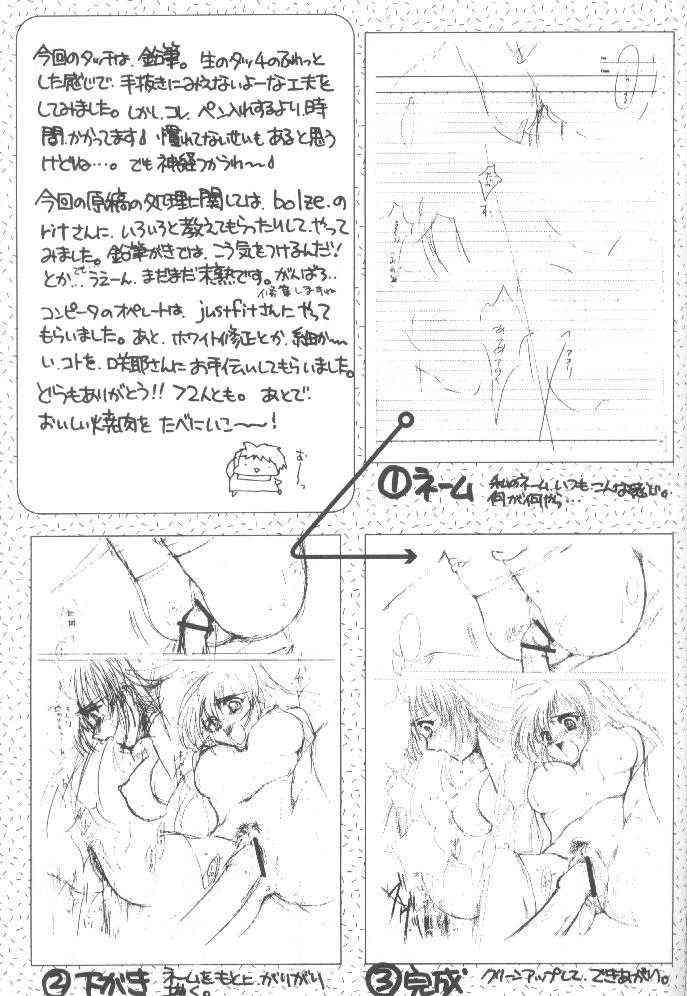 今回のタッチは、鉛筆。生のタッチのふわっと
した感じで、手抜きにみえないよーな工夫を
してみました。しかし、コレ、ペン入れするより、時
間、かかってます♪ 慣れてないせいもあると思う
けどね…。でも神経つかうわ〜♪
今回の原稿の処理に関しては、bolze.の
ritさんに、いろいろと教えてもらったりして、やって
みました。鉛筆がきでは、こう気をつけるんだ!
とか…。うえーん、まだまだ未熟です。がんばろ..
修業しますね
コンピータのオペレートは、justfitさんにやって
もらいました。あと、ホワイト修正とか、細か〜
い、コトを、咲耶さんにお手伝いしてもらいました。
どうもありがとう!! 2人とも。あとで、
おいしい焼肉を たべにいこ〜〜!
お〜っ
①ネーム
私のネーム、いつもこんな感じ。
何が何やら…
②下がき
ネームをもとに、がりがり
描く。
③完成
クリーンアップして、できあがい。